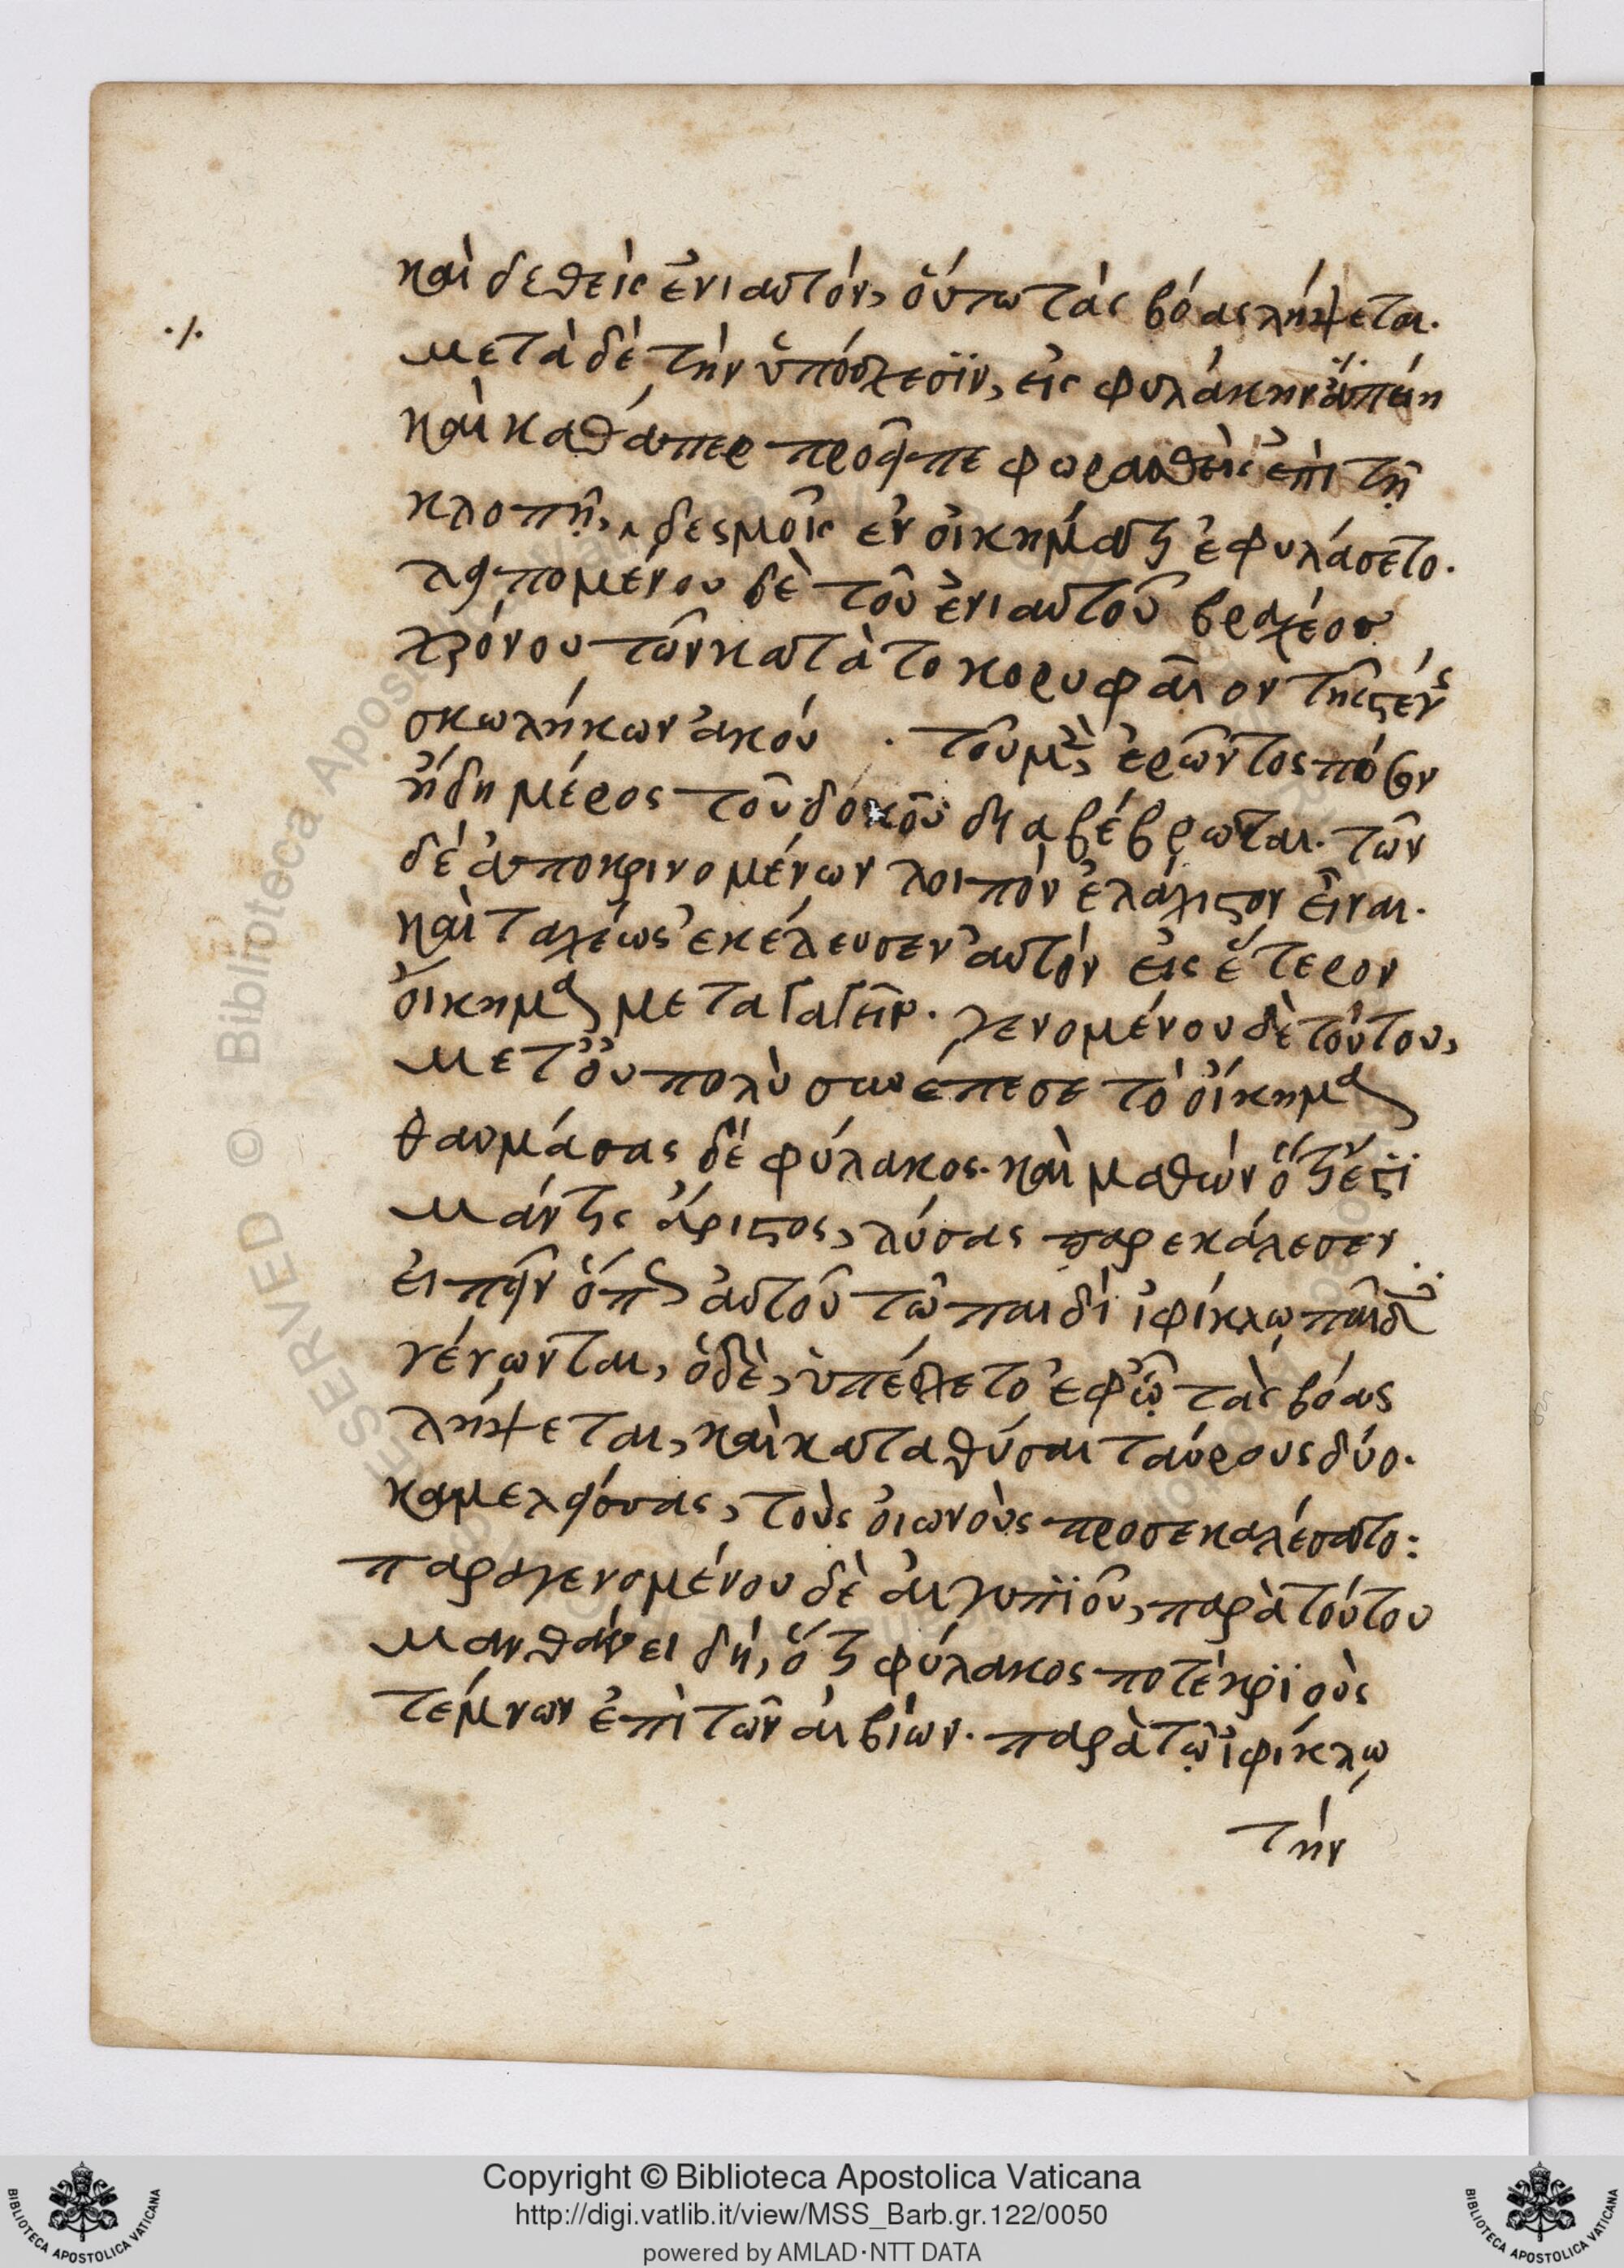 καὶ δεθεὶς ἐνιαυτόν, ὅυτω τὰς βόας λήψεται.
·/. μετὰ δὲ τὴν ὑπόσχεσϊν, εἰς φυλάκην ἄπειη
καὶ καθάπερ προεῖπε φωραθεὶς ἐπὶ τῇ
κλοπῇ, δεσμοῖς ἐν οἰκήματι ἐφυλάσετο.
λειπομένου δὲ τοῦ ἐνιαυτοῦ βραχέος
χρόνου τῶν κατὰ το κορυφαῖον τῆς στέγης
σκωλήκων ἀκού . τοῦ μὲν, ἐρῶντος πόσον
ἤδη μέρος τοῦ δοκοῦ διαβέβρωται. τῶν
δὲ ἀποκρινομένων λοιπόν ἐλάχιστον εἶναι.
καὶ ταχέως ἐκέλευσεν αὐτὸν εἰς ἕτερον
οἴκημα μεταγαγεῖν. γενομένου δὲ τούτου,
μετ' ὀυ πολὺ συνέπεσε τὸ οἴκημα
θαυμάσας δὲ φύλακος. καὶ μαθὼν ὅτι ἐστὶ
μάντις ἄριστος, λύσας παρεκάλεσεν
εἰπεῖν ὅπως αὐτοῦ τῶ παιδί ἰφίκλῳ παῖδες
γένωνται, ὁδὲ, ὑπέσχετο ἐφ' ᾧ τὰς βόας
λήψεται, καὶ καταθύσαι ταύρους δύο.
καὶ μελείσας, τοὺς οἰωνοὺς προσεκαλέσατο:
παραγενομένου δὲ αἰγυπϊοῦ, παρὰ τούτου
μανθάνει δή, ὅτι φύλακος ποτὲ κριοὺς
τέμνων ἐπὶ τῶν αἰβίων. παρὰ τῷ ἰφίκλῳ
τήν
Copyright © Biblioteca Apostolica Vaticana
http://digi.vatlib.it/view/MSS_Barb.gr.122/0050
powered by AMLAD·NTT DATA